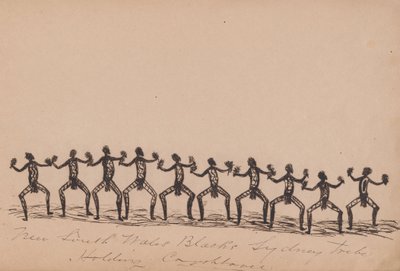 New South Wales Blacks Sydney tribe
Holding Corrobboree